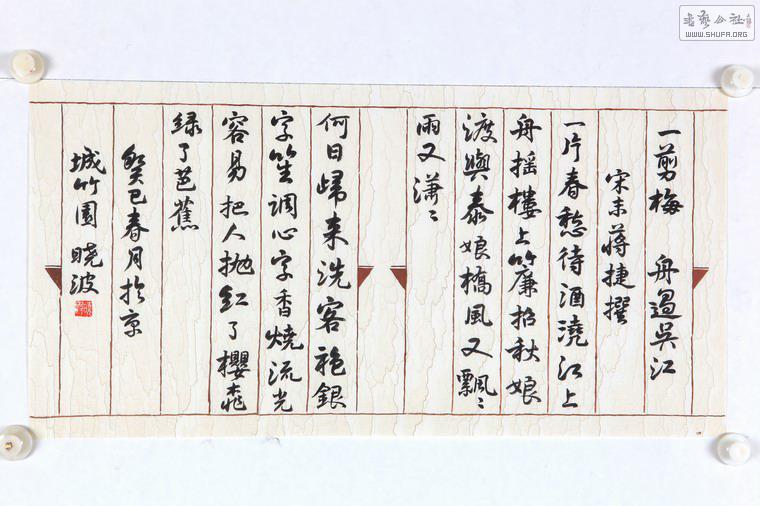 一剪梅 舟過吳江
宋末蔣捷撰
一片春愁待酒澆江上
舟搖樓上簾招秋娘
渡與泰娘橋風又飄〻
雨又瀟〻
何日歸来洗客袍銀
字笙調心字香燒流光
容易把人抛紅了櫻桃
緑了芭蕉
癸巳春月於京
城竹園曉波
书艺公社
WWW.SHUFA.ORG